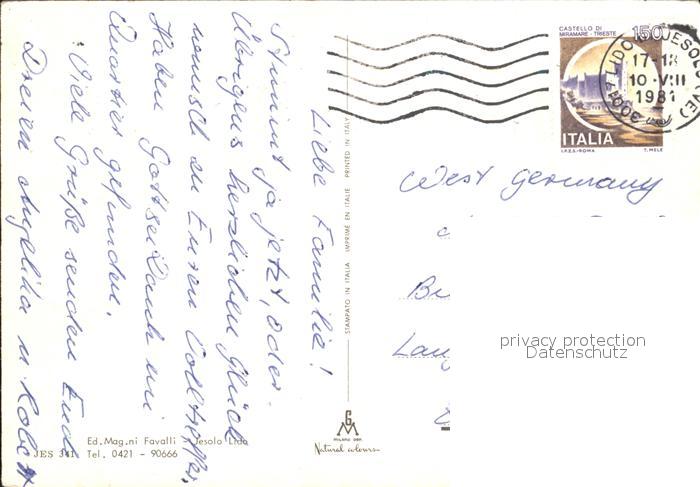 Liebe Familie!
Stimmt ja jetzt, oder.
Übrigens herzlichen Glück
wunsch zu Euren Volltreffer,
Haben Gott sei Dank ein
Quartier gefunden.
Viele Grüße senden Euch
Dreien Angelika u Robert
Ed.Mag.ni Favalli - Jesolo Lido
JES 341 Tel. 0421 - 90666
STAMPATO IN ITALIA IMPRIME EN ITALIE PRINTED IN ITALY
MILANO
Natural colours
CASTELLO DI
MIRAMARE - TRIESTE
150
ITALIA
I.P.Z.S.-ROMA T. MELE
30017 LIDO JESOLO (VE)
17-18
10-VIII
1981
West Germany
Lang
privacy protection
Datenschutz